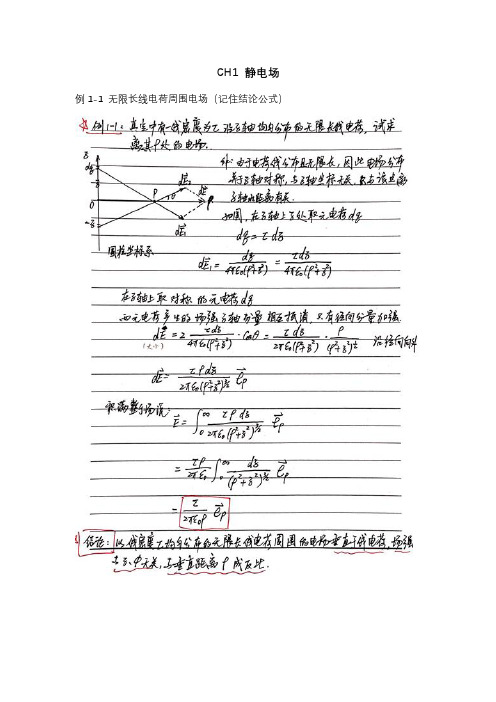 CH1 静电场
例 1-1 无限长线电荷周围电场（记住结论公式）
例1-1: 真空中有一线密度为τ 沿z轴均匀分布的无限长线电荷, 试求
离其ρ处的电场.
解: 由于电荷线分布且无限长, 因此电场分布
关于z轴对称, 与z轴坐标无关, 只与该点离
z轴的距离有关.
如图, 在z轴上z处取元电荷dq
z
dq
z
0
-z
ρ
θ
P
dE₁
dE
dE₁
圆柱坐标系
dq = τdz
dE₁ = dq / 4πε₀(ρ²+z²) = τdz / 4πε₀(ρ²+z²)
在z轴上取对称的元电荷dq
两元电荷产生的场强z轴分量相互抵消, 只有径向分量加强.
dE = 2 τdz / 4πε₀(ρ²+z²) · cosθ = τdz / 2πε₀(ρ²+z²) · ρ / (ρ²+z²)^½ 沿径向向外
(大小)
dE = τρdz / 2πε₀(ρ²+z²)^3/2 e⃗ρ
E⃗ = ∫₀^∞ τρdz / 2πε₀(ρ²+z²)^3/2 e⃗ρ
= τρ / 2πε₀ ∫₀^∞ dz / (ρ²+z²)^3/2 e⃗ρ
= τ / 2πε₀ρ e⃗ρ
结论: 以线密度τ均匀分布的无限长线电荷周围的电场垂直于线电荷, 场强
与z、φ无关, 与垂直距离ρ成反比.